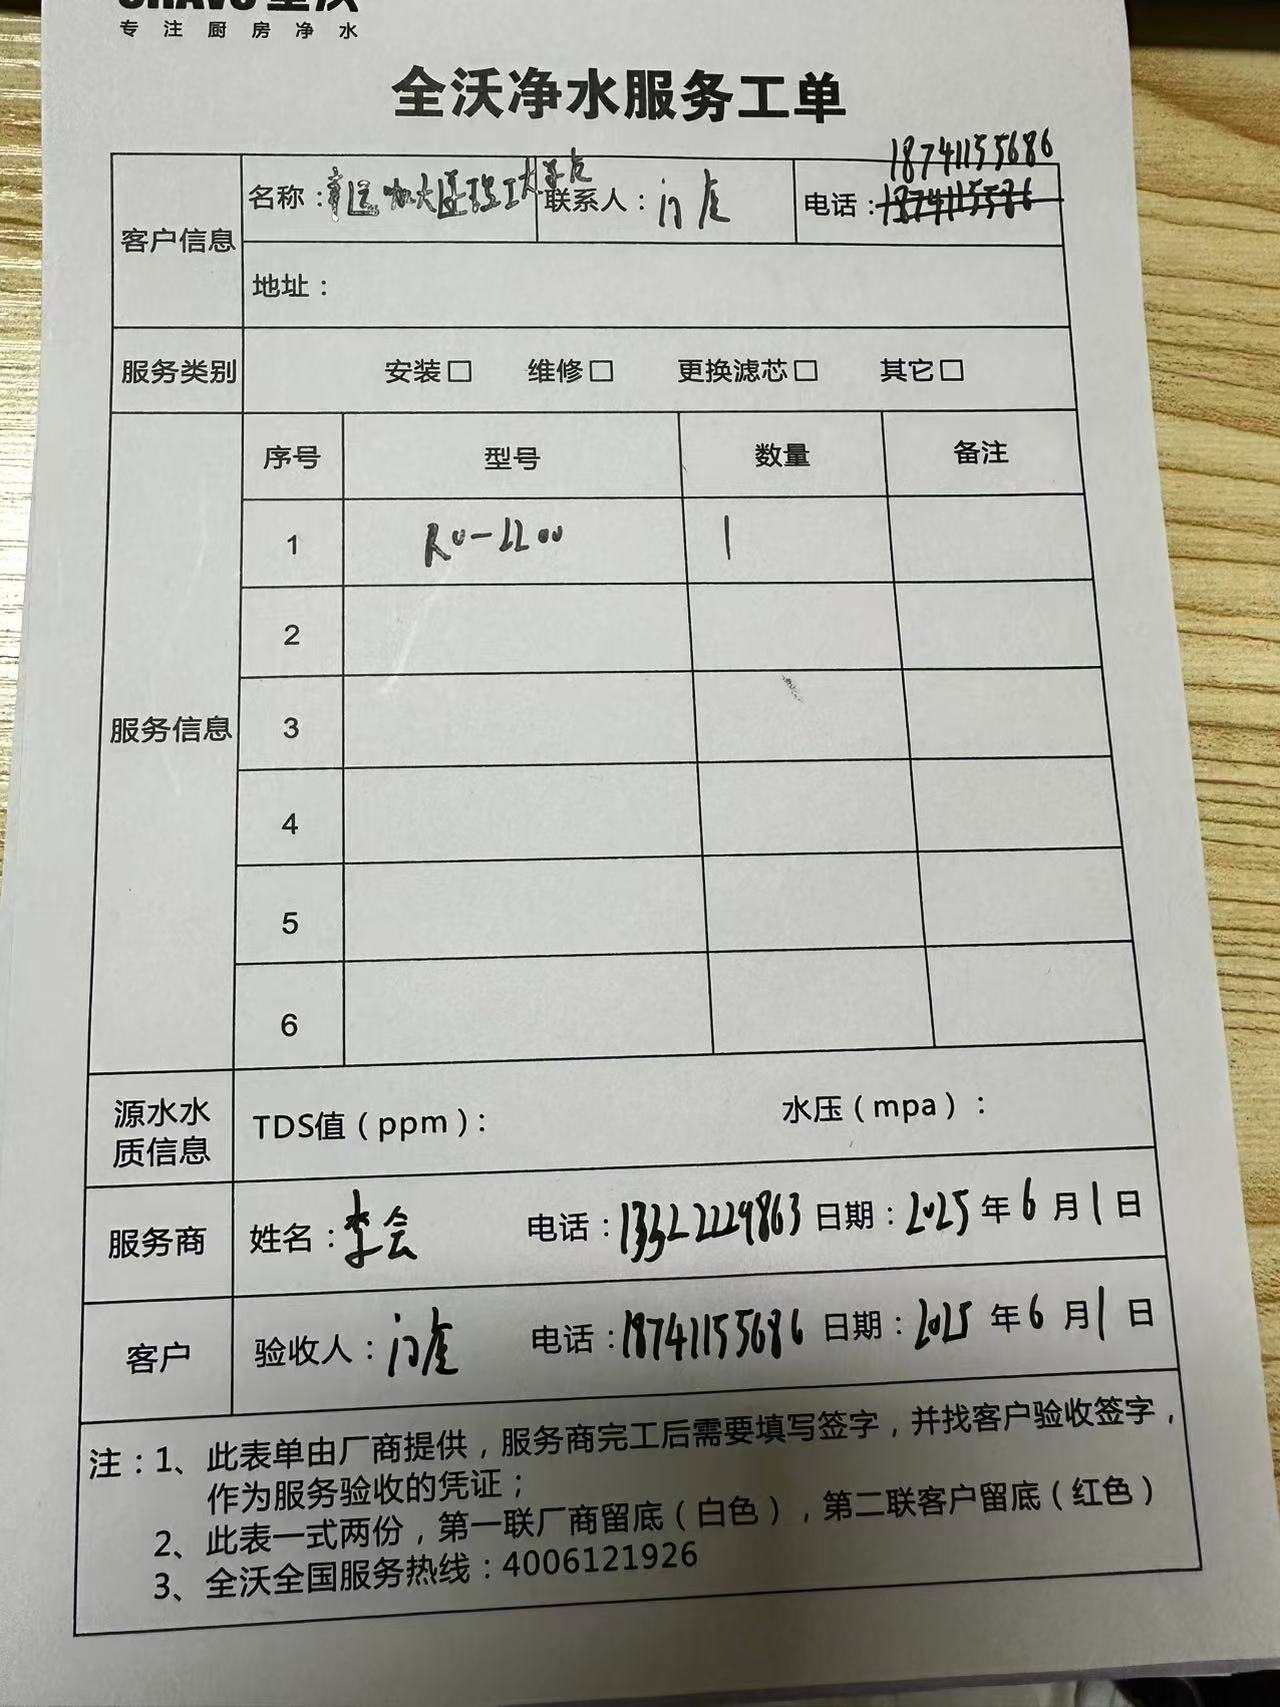 专注厨房净水
全沃净水服务工单
18741155686
客户信息 名称： 大学店 联系人： 门虎 电话：
地址：
服务类别 安装□ 维修□ 更换滤芯□ 其它□
服务信息 序号 型号 数量 备注
1 RO-2200 1
2
3
4
5
6
源水水质信息 TDS值（ppm）： 水压（mpa）：
服务商 姓名：李会 电话：13322229863 日期：2025年6月1日
客户 验收人：门虎 电话：18741155686 日期：2025年6月1日
注：1、此表单由厂商提供，服务商完工后需要填写签字，并找客户验收签字，
作为服务验收的凭证；
2、此表一式两份，第一联厂商留底（白色），第二联客户留底（红色）
3、全沃全国服务热线：4006121926